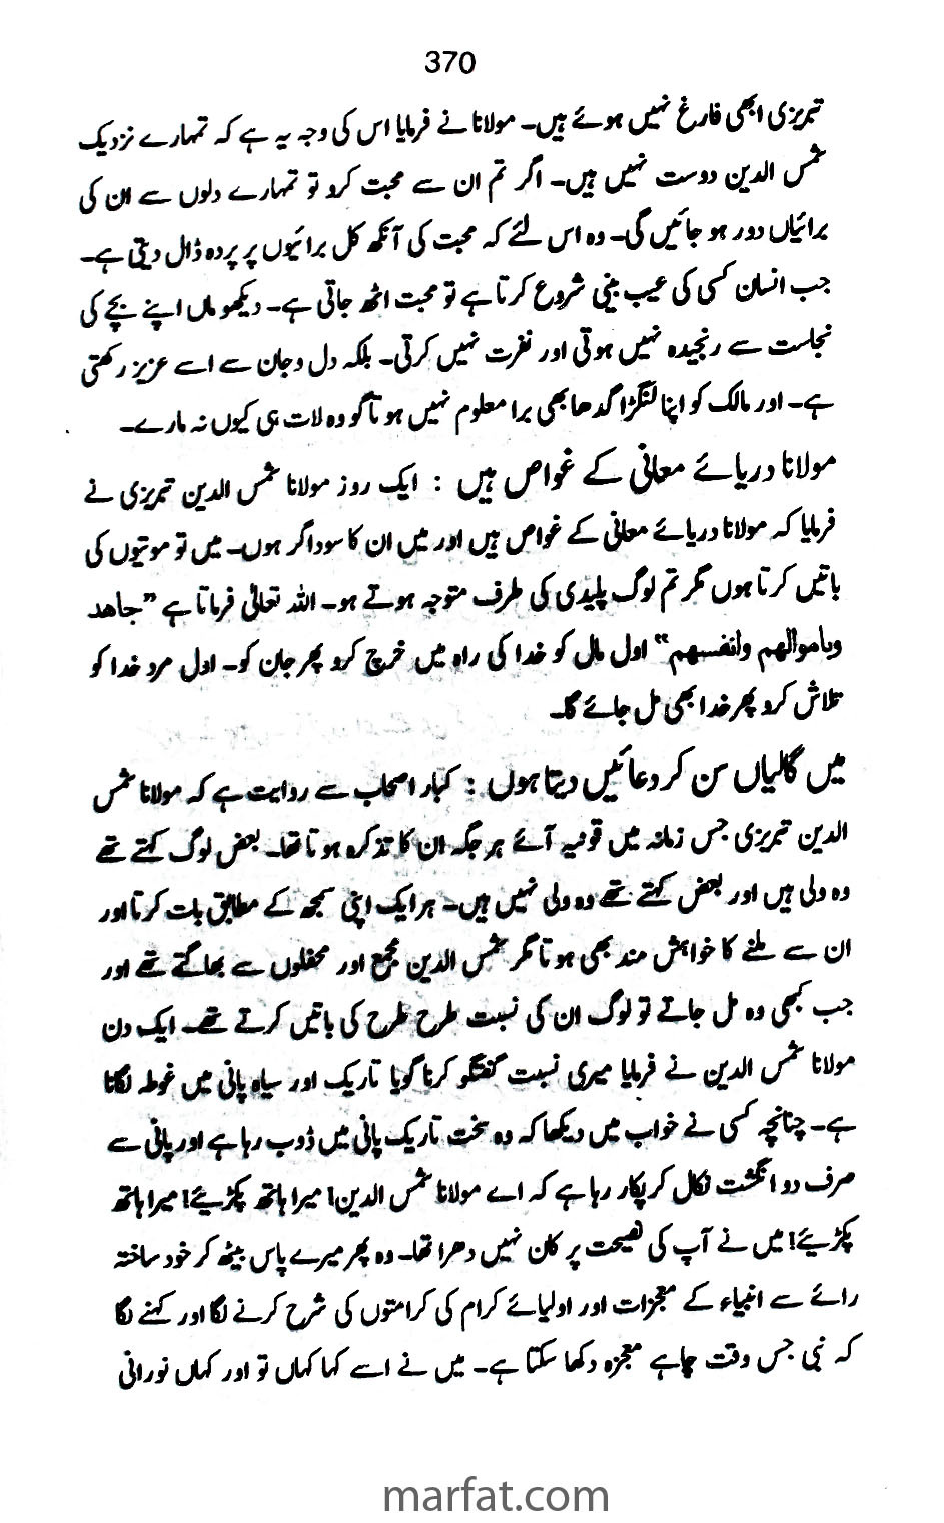 370
تبریزی ابھی فارغ نہیں ہوئے ہیں۔ مولانا نے فرمایا اس کی وجہ یہ ہے کہ تمہارے نزدیک
شمس الدین دوست نہیں ہیں۔ اگر تم ان سے محبت کرو تو تمہارے دلوں سے ان کی
برائیاں دور ہو جائیں گی۔ وہ اس لئے کہ محبت کی آنکھ کل برائیوں پر پردہ ڈال دیتی ہے۔
جب انسان کسی کی عیب بینی شروع کرتا ہے تو محبت اٹھ جاتی ہے۔ دیکھو ماں اپنے بچے کی
نجاست سے رنجیدہ نہیں ہوتی اور نفرت نہیں کرتی۔ بلکہ دل و جان سے اسے عزیز رکھتی
ہے۔ اور مالک کو اپنا لنگڑا گدھا بھی برا معلوم نہیں ہوتا گو وہ لات ہی کیوں نہ مارے۔
مولانا دریائے معانی کے غواص ہیں : ایک روز مولانا شمس الدین تبریزی نے
فرمایا کہ مولانا دریائے معانی کے غواص ہیں اور میں ان کا سوداگر ہوں۔ میں تو موتیوں کی
باتیں کرتا ہوں مگر تم لوگ پلیدی کی طرف متوجہ ہوتے ہو۔ اللہ تعالیٰ فرماتا ہے ”جاھد
وباموالھم وانفسھم“ اول مال کو خدا کی راہ میں خرچ کرو پھر جان کو۔ اول مرد خدا کو
تلاش کرو پھر خدا بھی مل جائے گا۔
میں گالیاں سن کر دعائیں دیتا ہوں : کبار اصحاب سے روایت ہے کہ مولانا شمس
الدین تبریزی جس زمانہ میں قونیہ آئے ہر جگہ ان کا تذکرہ ہوتا تھا۔ بعض لوگ کہتے تھے
وہ ولی ہیں اور بعض کہتے تھے وہ ولی نہیں ہیں۔ ہر ایک اپنی سمجھ کے مطابق بات کرتا اور
ان سے ملنے کا خواہش مند بھی ہوتا مگر شمس الدین مجمع اور محفلوں سے بھاگتے تھے اور
جب کبھی وہ مل جاتے تو لوگ ان کی نسبت طرح طرح کی باتیں کرتے تھے۔ ایک دن
مولانا شمس الدین نے فرمایا میری نسبت گفتگو کرنا گویا تاریک اور سیاہ پانی میں غوطہ لگانا
ہے۔ چنانچہ کسی نے خواب میں دیکھا کہ وہ سخت تاریک پانی میں ڈوب رہا ہے اور پانی سے
صرف دو انگشت نکال کر پکار رہا ہے کہ اے مولانا شمس الدین! میرا ہاتھ پکڑیئے! میرا ہاتھ
پکڑیئے! میں نے آپ کی نصیحت پر کان نہیں دھرا تھا۔ وہ پھر میرے پاس بیٹھ کر خود ساختہ
رائے سے انبیاء کے معجزات اور اولیائے کرام کی کرامتوں کی شرح کرنے لگا اور کہنے لگا
کہ نبی جس وقت چاہے معجزہ دکھا سکتا ہے۔ میں نے اسے کہا کہاں تو اور کہاں نورانی
marfat.com